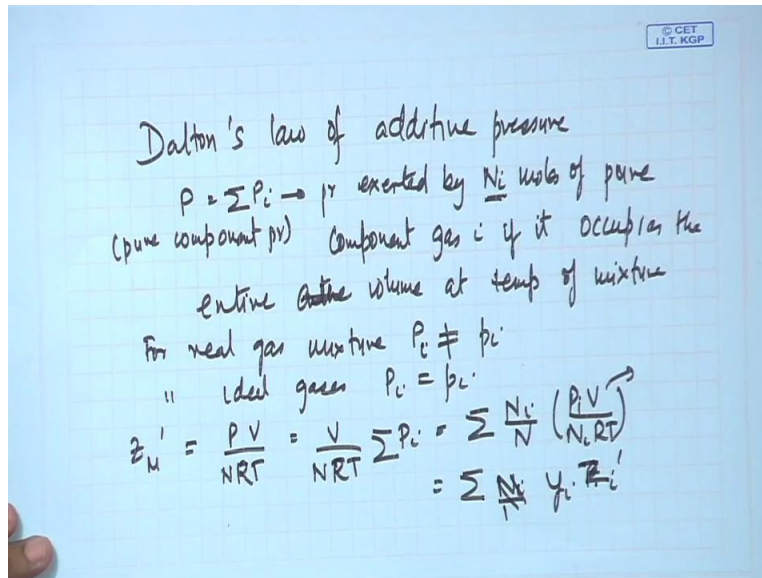 © CET
I.I.T. KGP
Dalton's law of additive pressure
P = ΣPi → pr exerted by Ni moles of pure
(pure component pr) Component gas i if it occupies the
entire volume at temp of mixture
For real gas mixture Pi ≠ pi.
" ideal gases Pi = pi.
Z_M' = PV/NRT = V/NRT ΣPi = Σ Ni/N (PiV/NiRT)
= Σ yi Zi'